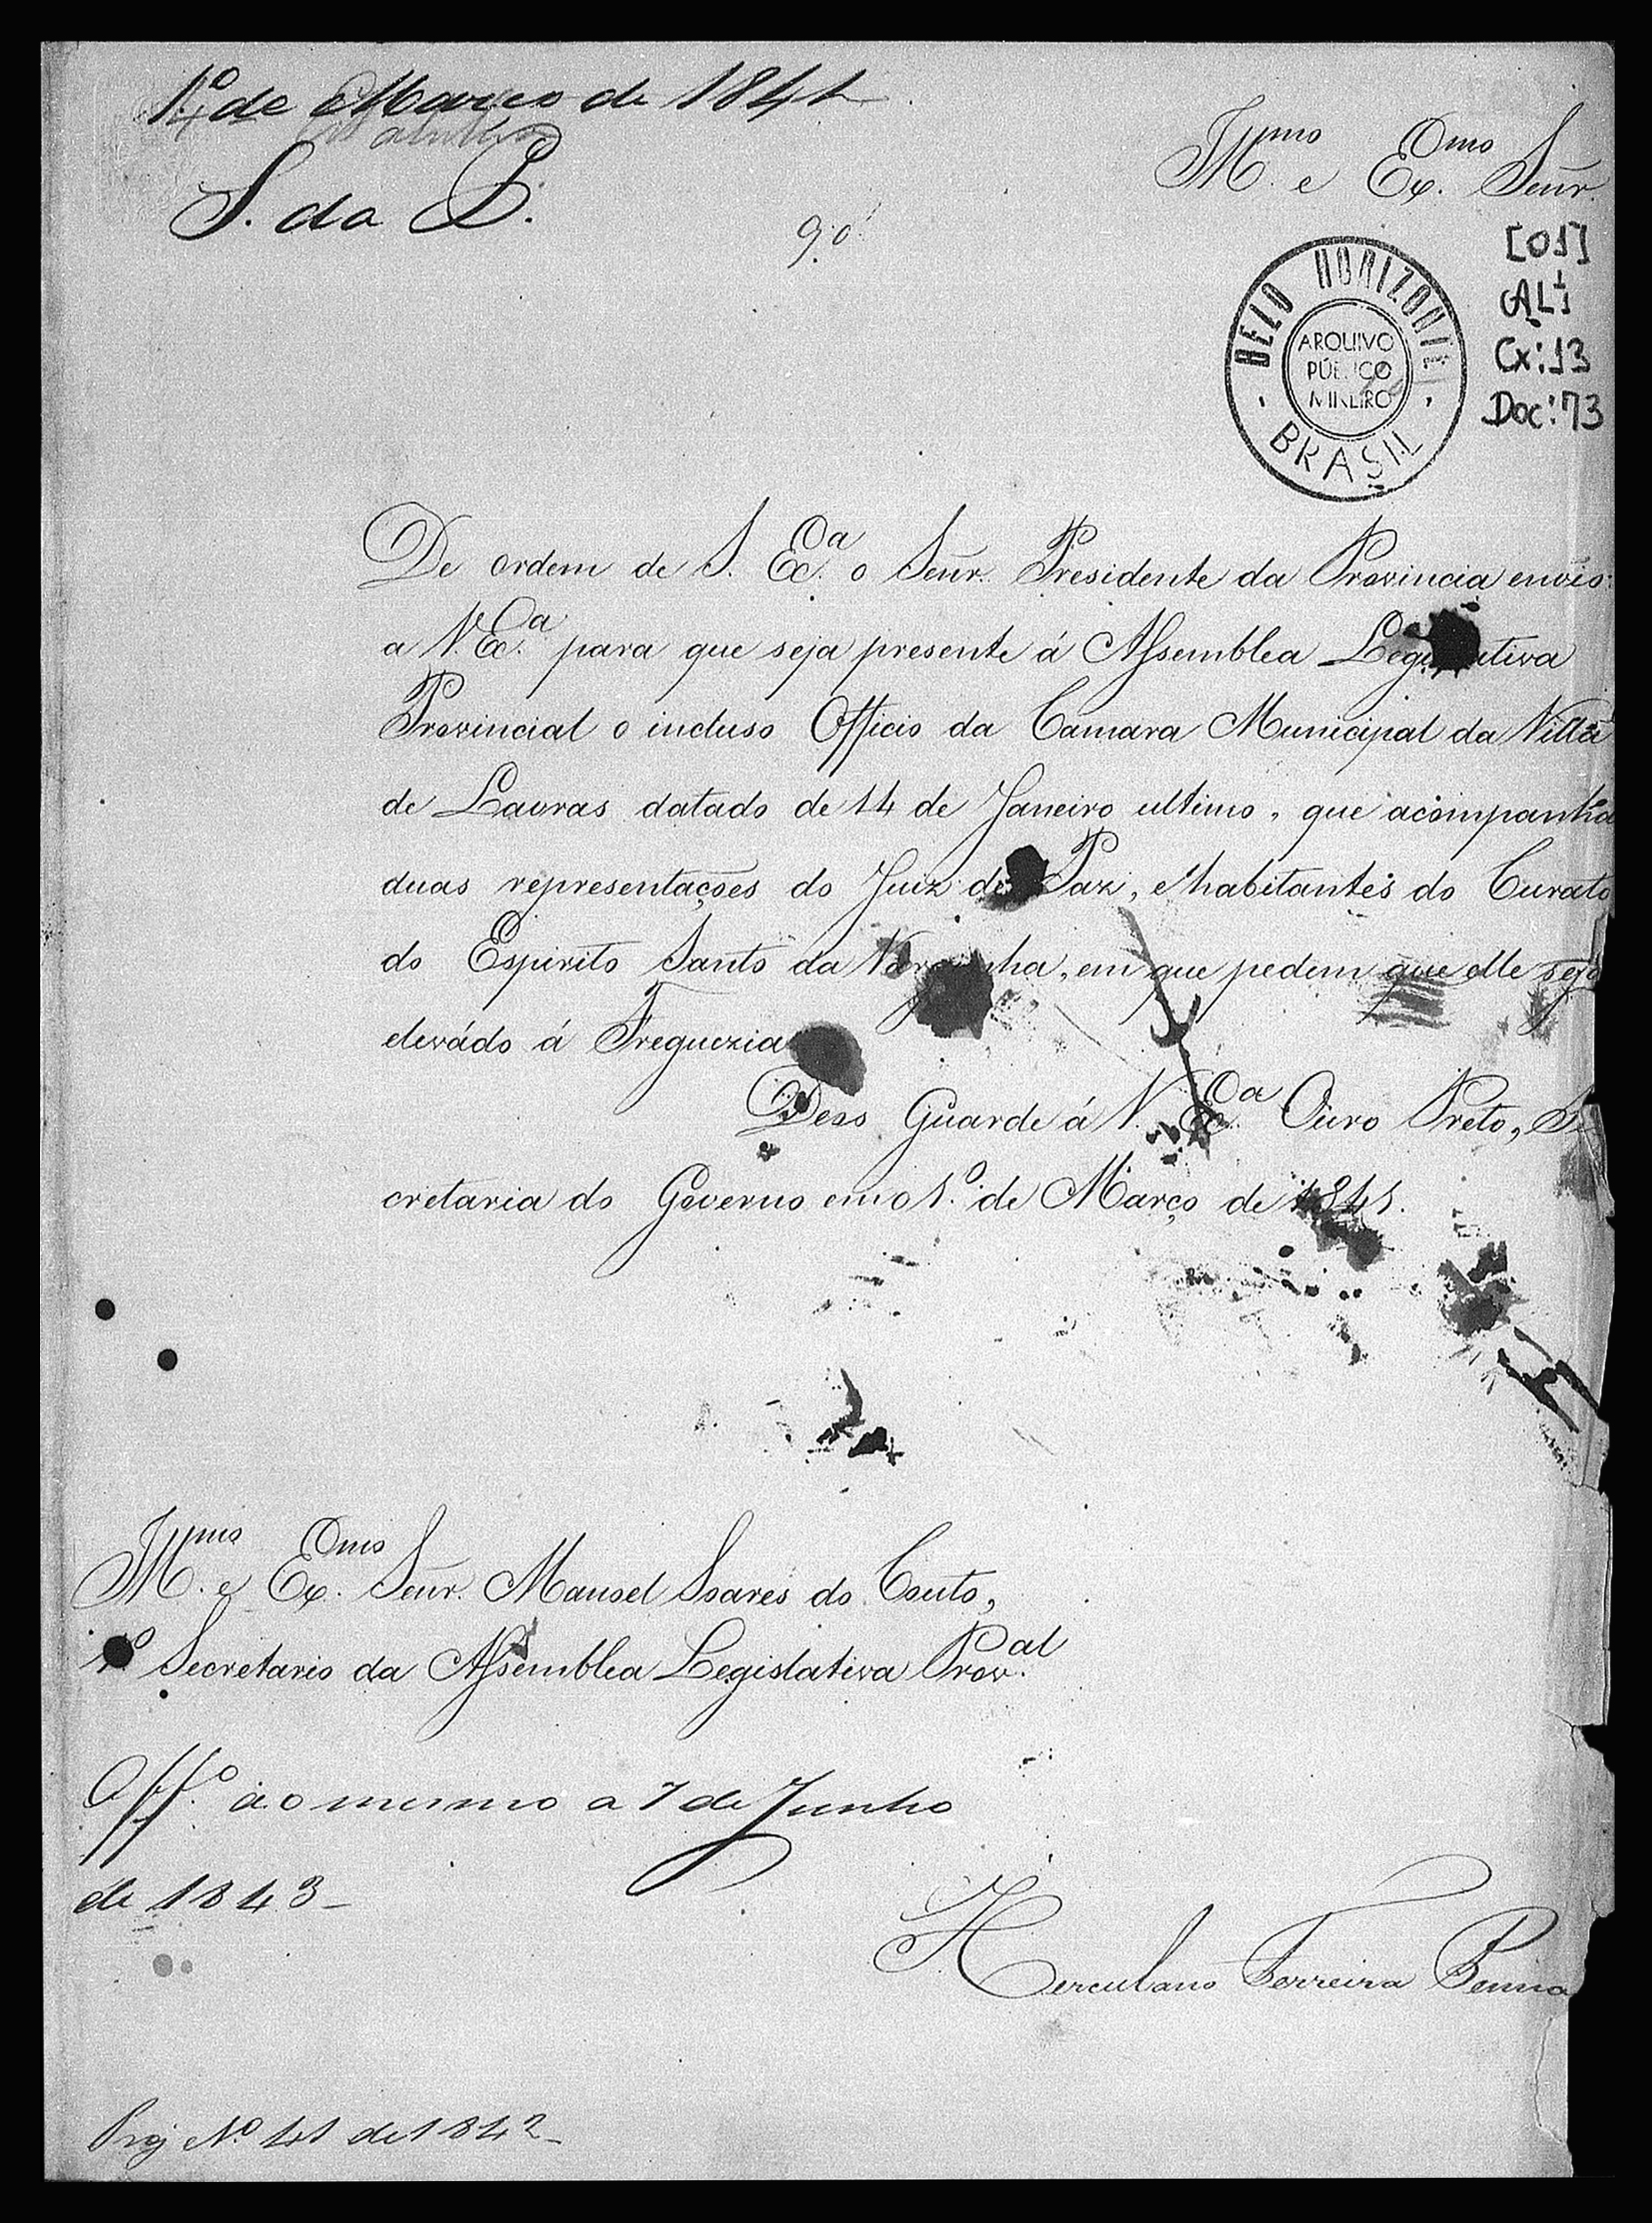 1º de Março de 1841
S. da P.
9.º
Illmo. e Exmo. Senr.
BELO HORIZONTE
ARQUIVO
PÚBLICO
MINEIRO
BRASIL
[01]
AL 1
Cx: 13
Doc: 73
De ordem de S. Exa. o Senr. Presidente da Provincia envio
a V. Exa. para que seja presente á Assemblea Legislativa
Provincial o incluso Officio da Camara Municipal da Villa
de Lavras datado de 14 de Janeiro ultimo, que acompanha
duas representações do Juiz de Paz, e habitantes do Curato
do Espirito Santo da Varginha, em que pedem que elle seja
elevádo á Freguezia
Deos Guarde á V. Exa. Ouro Preto, Se
cretaria do Governo em o 1.º de Março de 1841.
Illmo. e Exmo. Senr. Manoel Soares do Couto,
1º Secretario da Assemblea Legislativa Proval.
Offº. ao mesmo a 7 de Junho
de 1843 -
Herculano Ferreira Penna
Proj Nº 41 de 1842 -